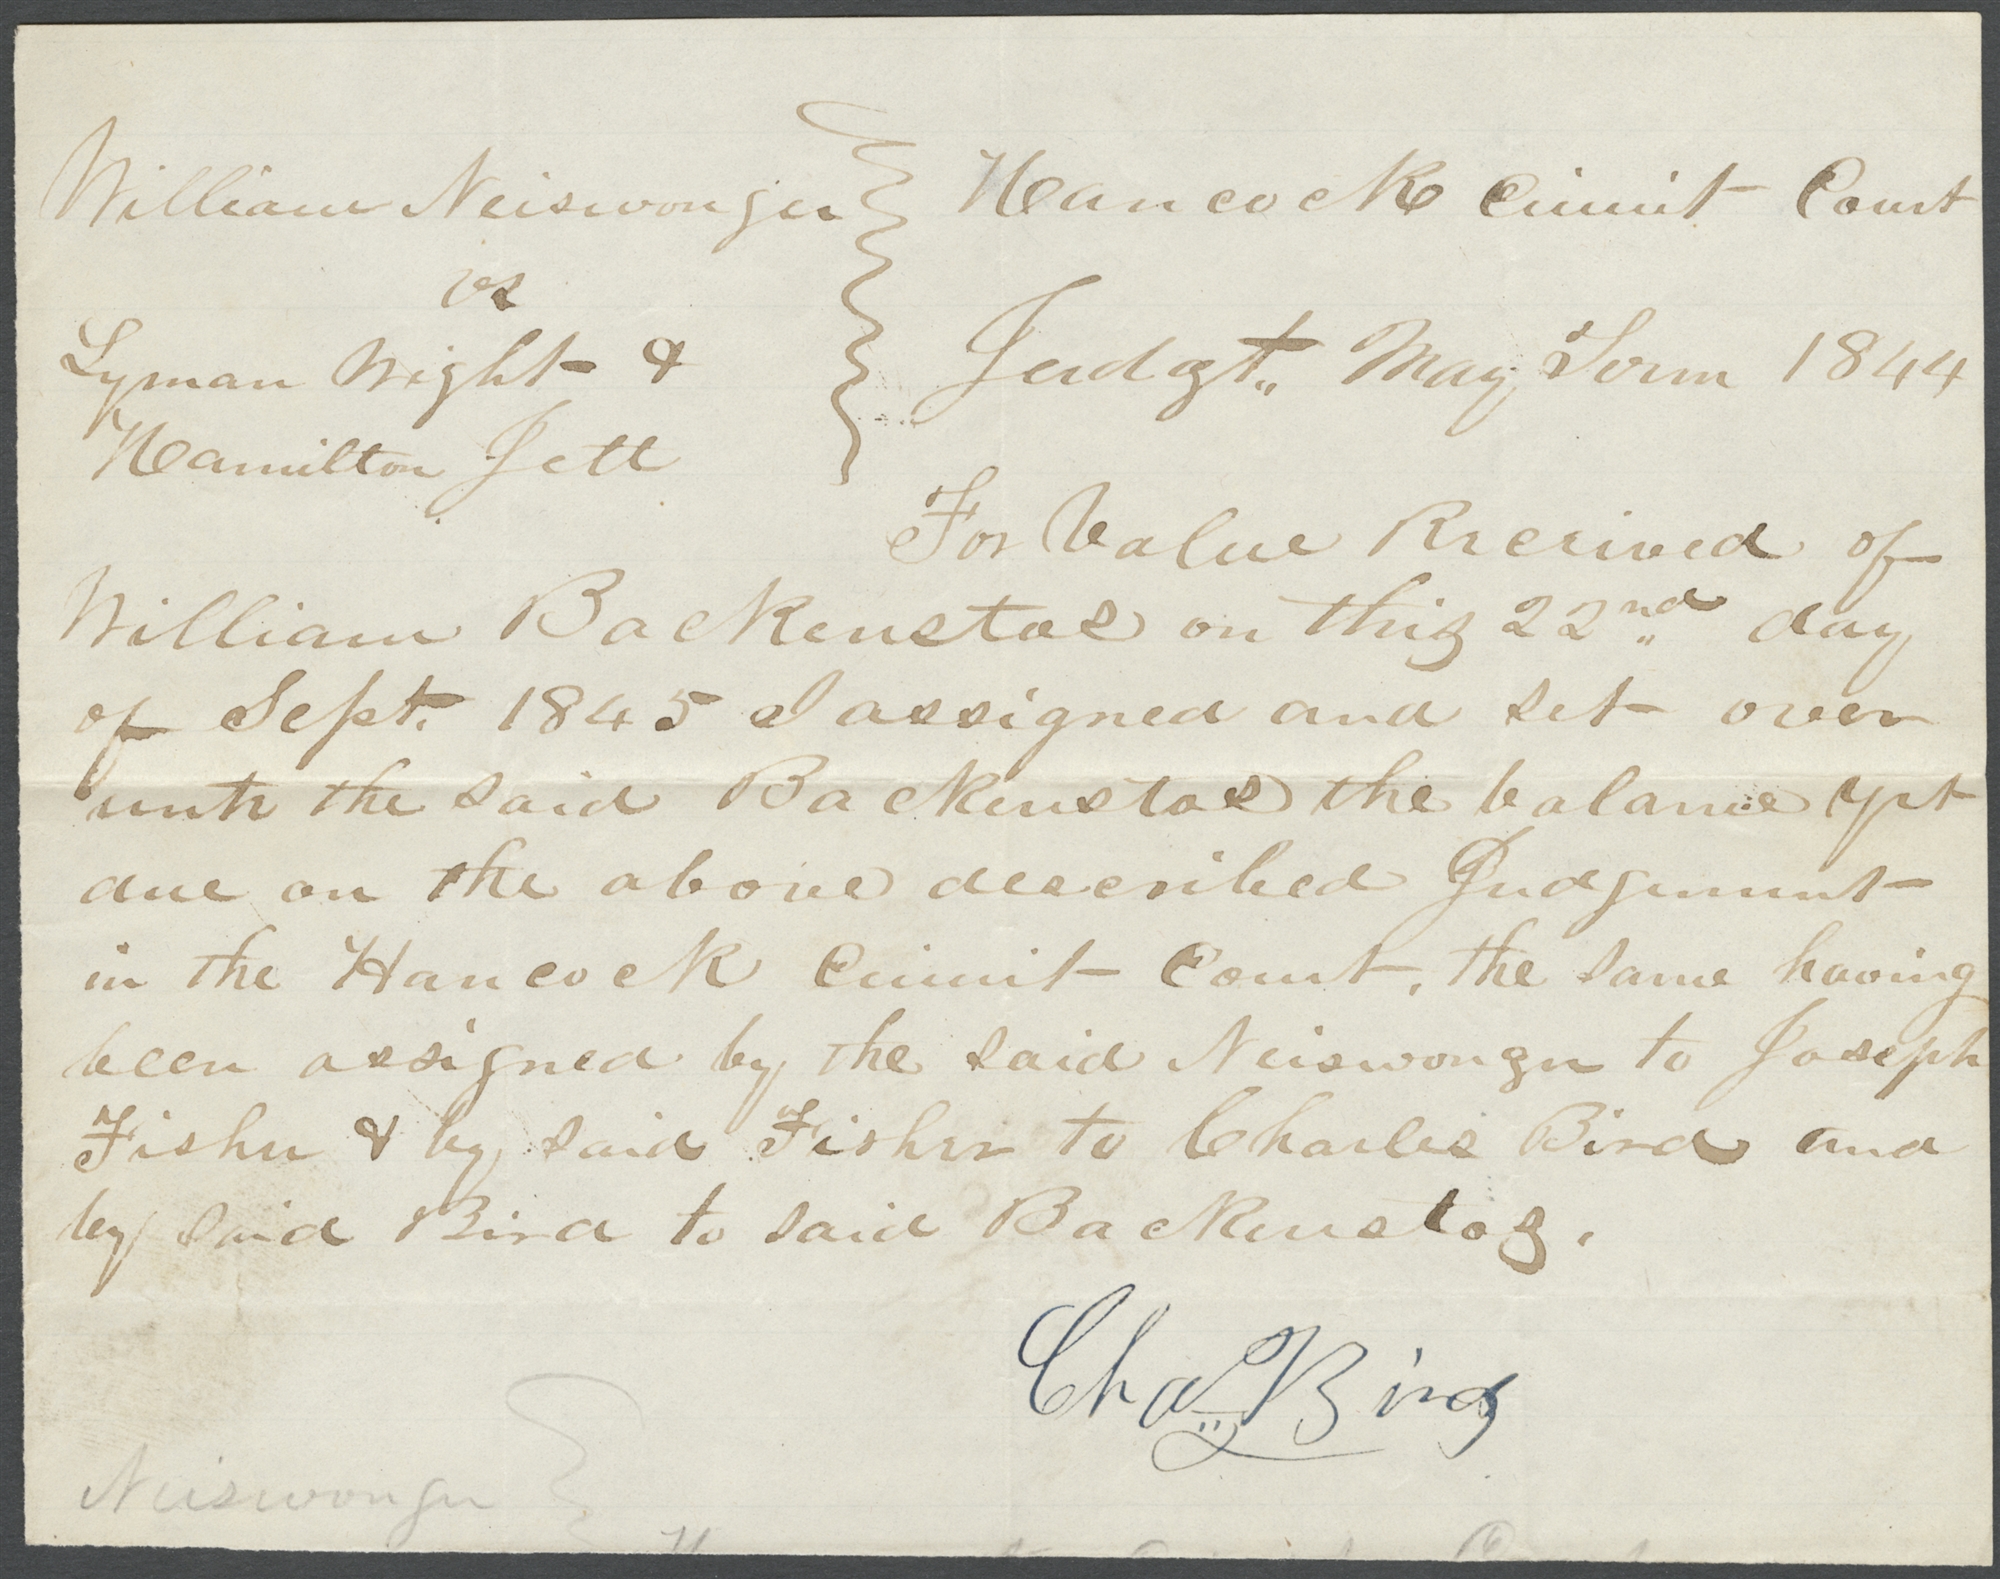 William Neiswonger Hancock Circuit Court
vs
Lyman Wight & Judgt. May Term 1844
Hamilton Jett
For Value Received of
William Backenstos on this 22nd day
of Sept. 1845 I assigned and set over
unto the said Backenstos the balance yet
due on the above described Judgement
in the Hancock Circuit Court, the same having
been assigned by the said Neiswonger to Joseph
Fisher & by said Fisher to Charles Bird and
by said Bird to said Backenstos.
Chas Bird
Neiswonger